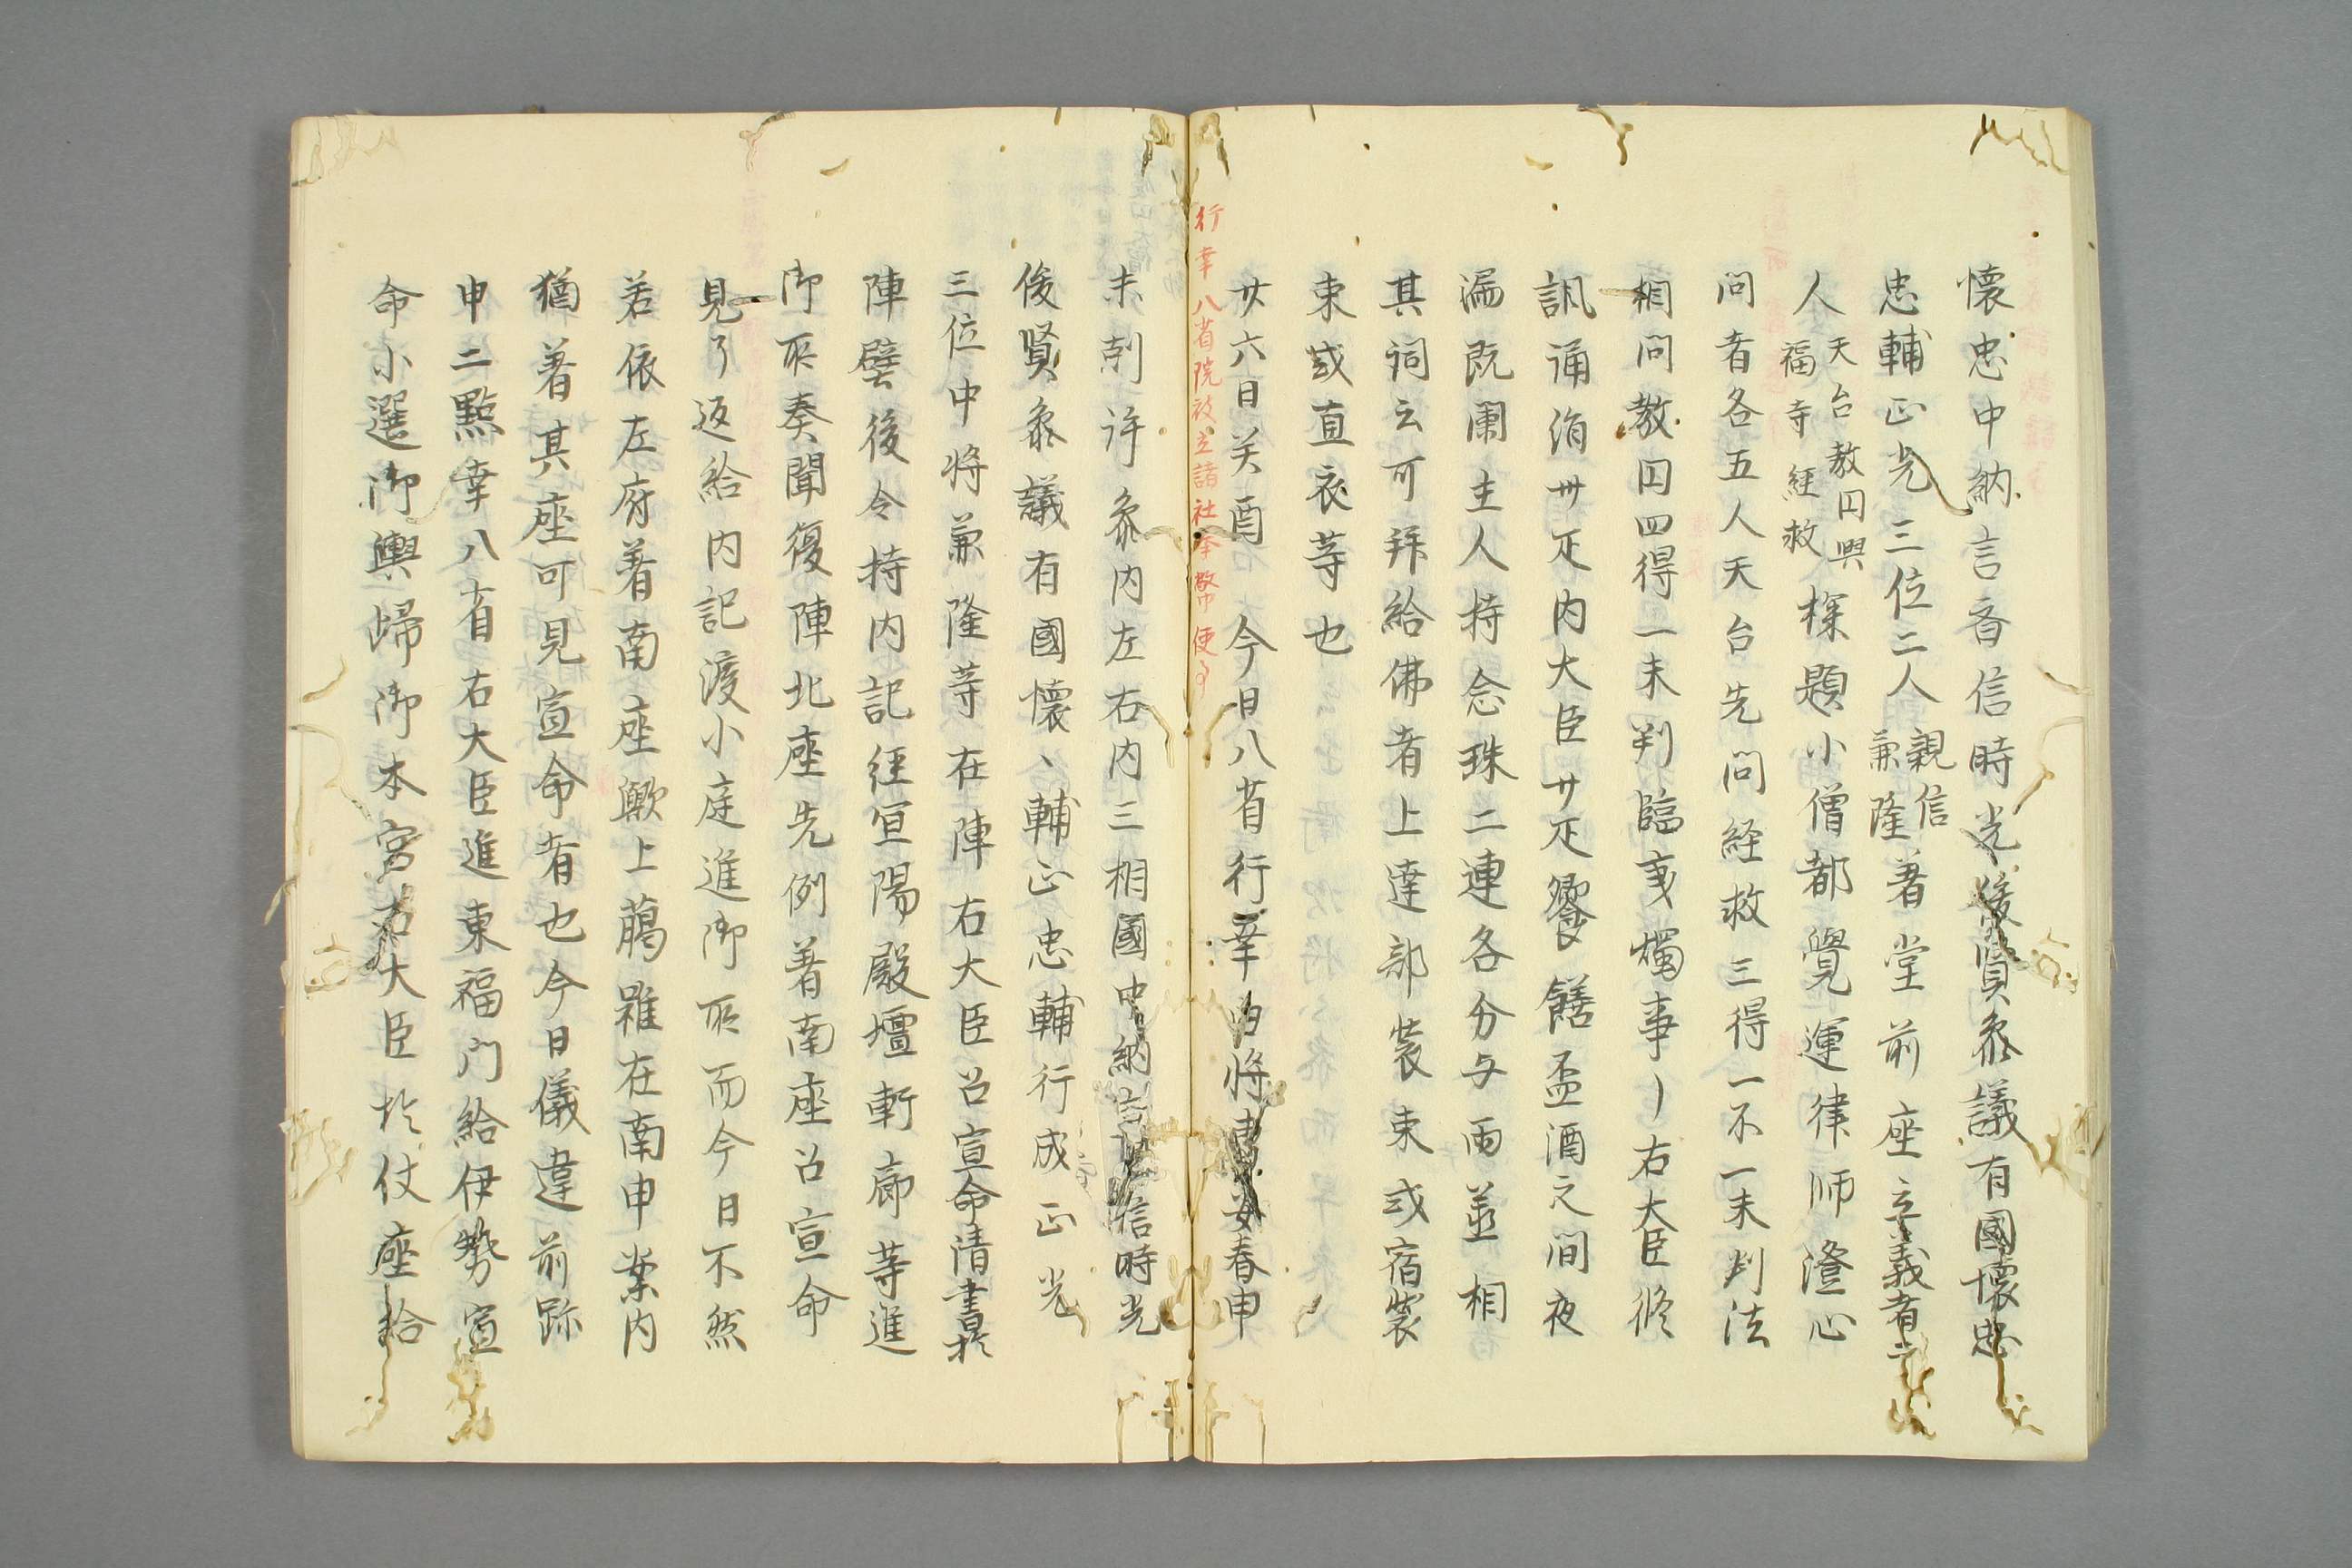 懐忠中納言斉信時光俊賢参議有國懐忠
忠輔正光三位二人親信兼隆著堂前座立義者二
人天台教円興福寺経救探題小僧都覺運律師澄心
問者各五人天台先問経救三得一不一未判法
相問教円四得一未判臨亥燭事〻右大臣修
諷誦絹卅疋内大臣廿疋饗饍盃酒之間夜
漏既闌主人持念珠二連各分与両並相
其詞云可拜給佛者上達部裝束或宿裝
束或直衣等也
行幸八省院被立諸社奉幣使事
廿六日癸酉 今日八省行幸
未剋許参内左右内三相國中納言 信時光
俊賢参議有國懐〻輔正忠輔行成正光
三位中将兼隆等在陣右大臣召宣命清書於
陣壁後令持内記経宣陽殿壇軒廊等進
御所奏聞復陣北座先例著南座召宣命
見了返給内記渡小庭進御所而今日不然
若依左府著南座歟上﨟雖在南申案内
猶著其座可見宣命者也今日儀違前跡
申二點幸八省右大臣進東福門給伊勢宣
命小選御輿歸御本宮右大臣於仗座給